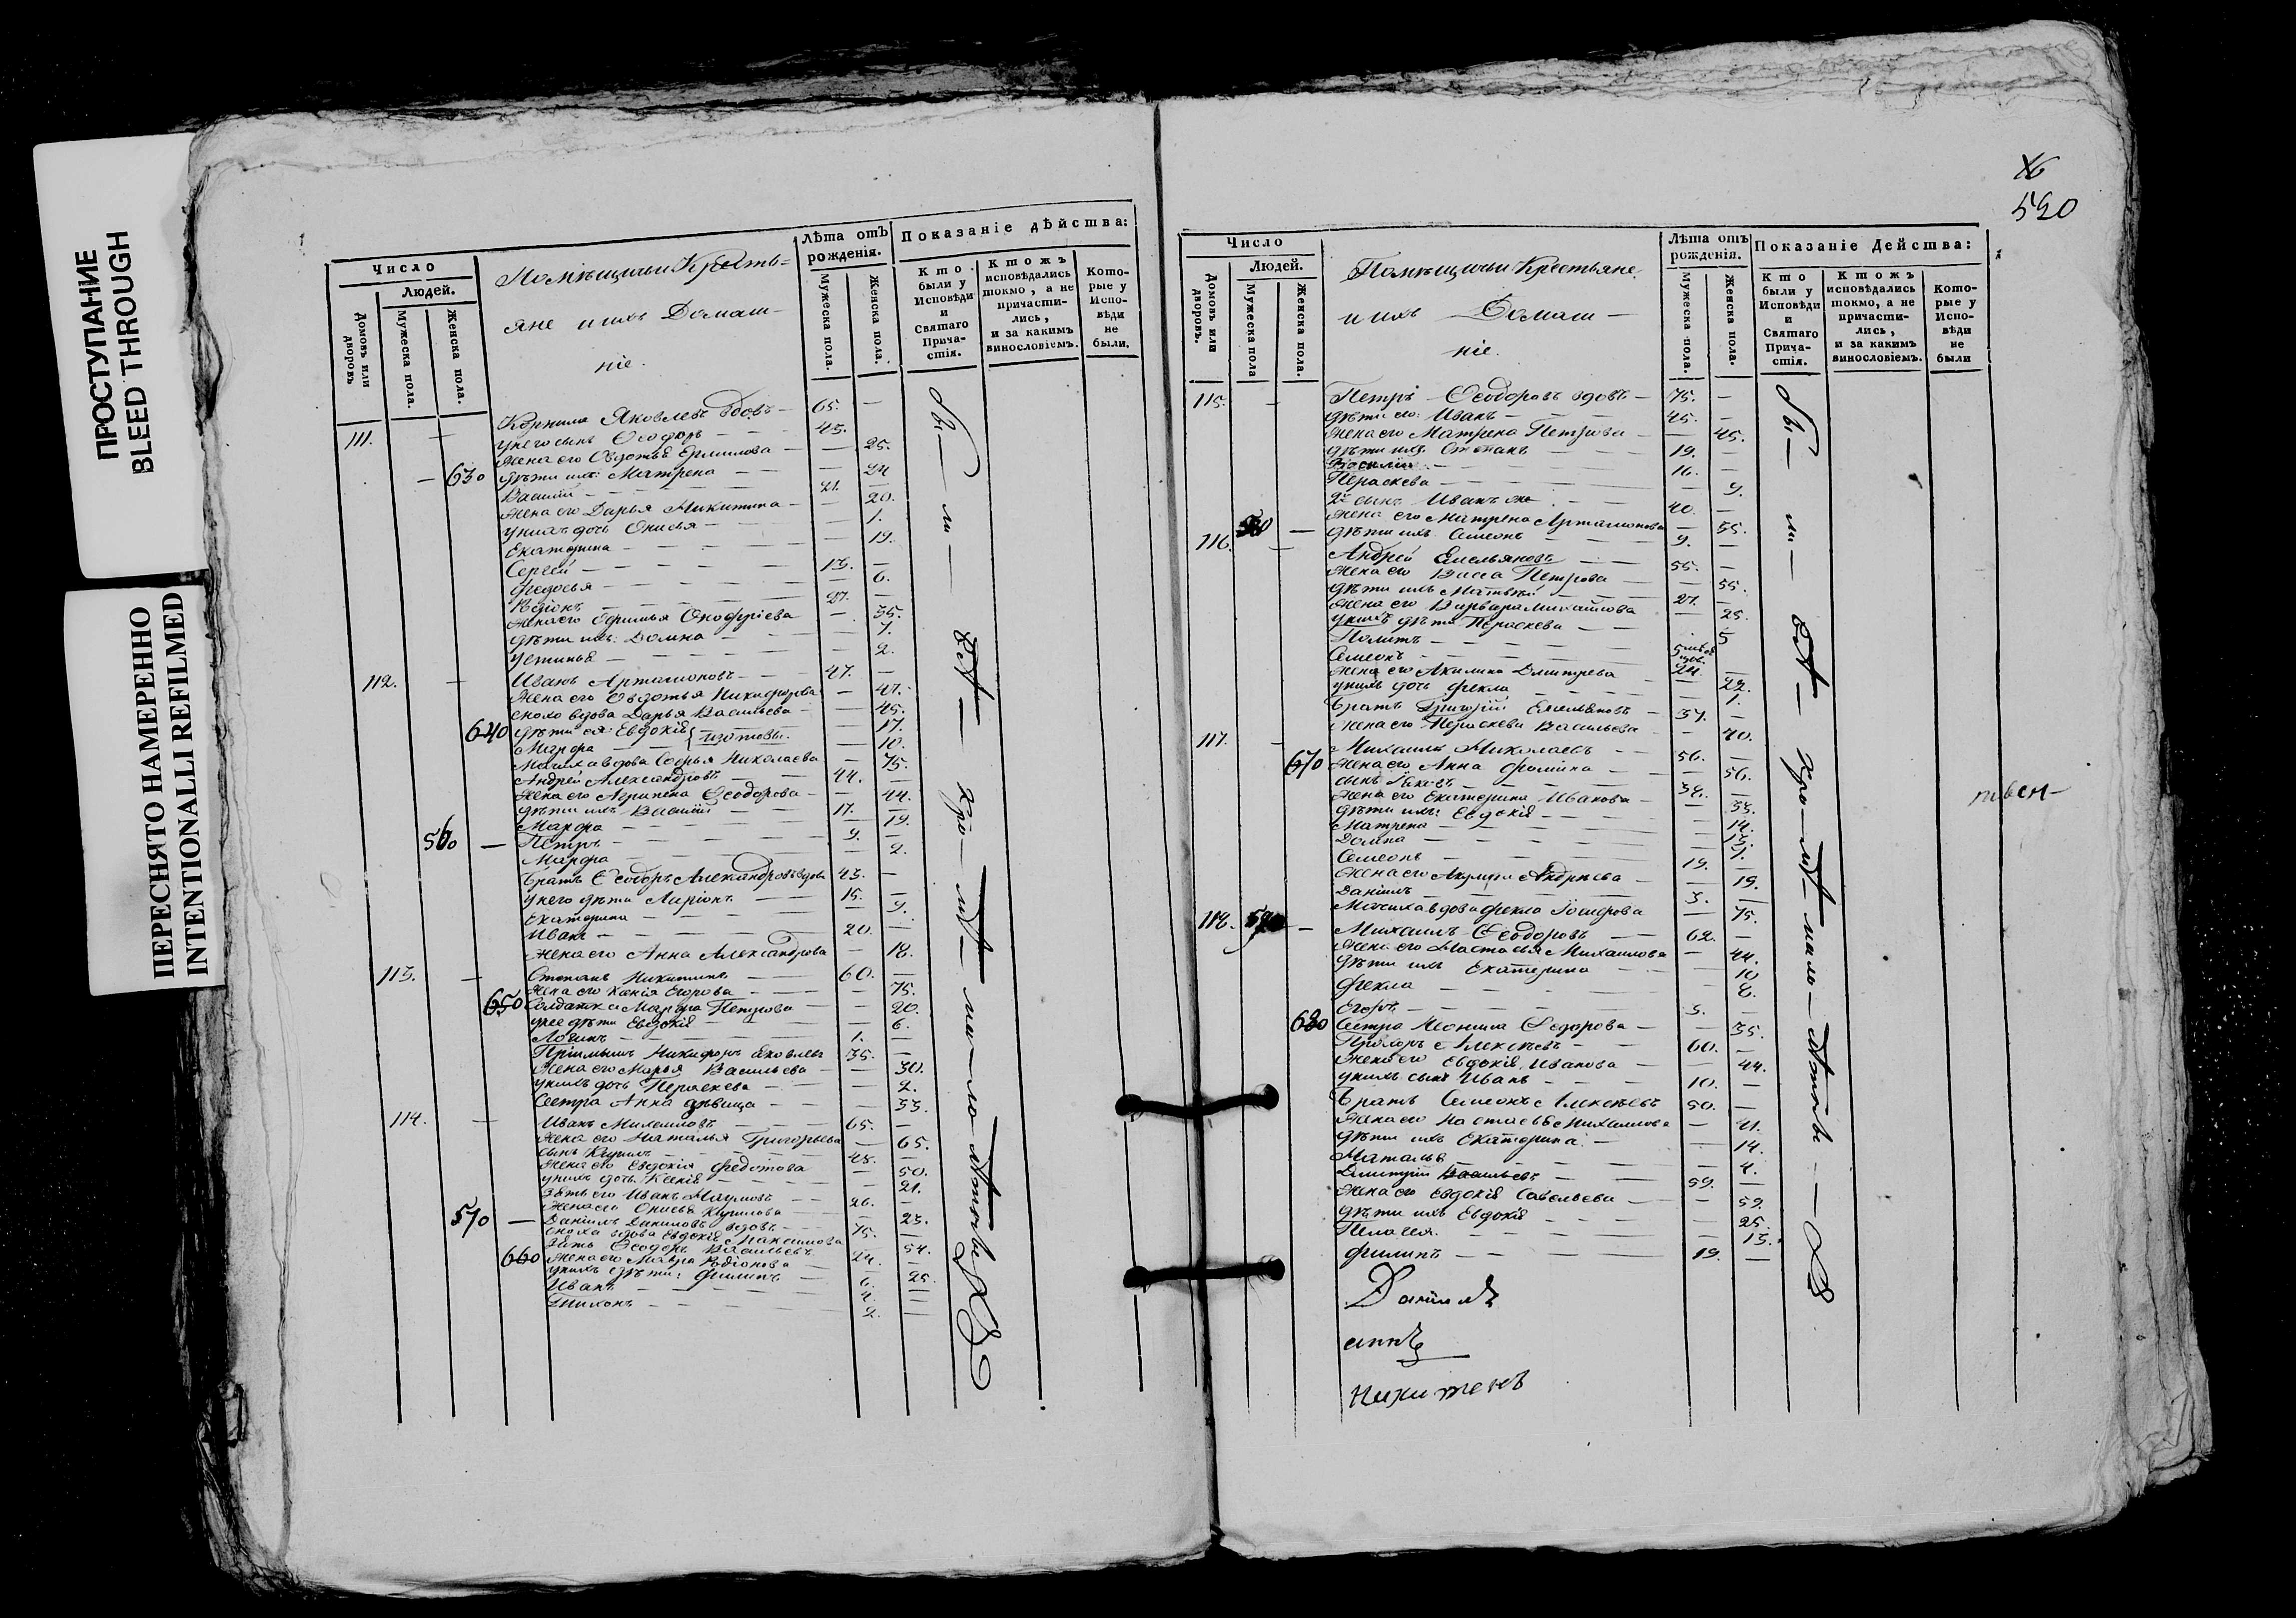 ПРОСТУПАНИЕ
BLEED THROUGH
ПЕРЕСНЯТО НАМЕРЕННО
INTENTIONALLI REFILMED
Число
Людей.
Домовъ или дворовъ
Мужеска пола.
Женска пола.
Помѣщичьи Кресть-
яне и ихъ Домаш-
ніе.
Лѣта отъ рожденія.
Мужеска пола.
Женска пола.
Показаніе дѣйства:
Кто были у Исповѣди и Святаго Прича-стія.
Ктожъ исповѣдались токмо, а не причасти-лись, и за какимъ винословіемъ.
Кото-рые у Испо-вѣди не были.
111. — Корнила Яковлевъ вдовъ — 65. —
у него сынъ Ѳеодоръ — 45.
жена его Овдотья Ермилова — — 25.
— 630 дѣти ихъ: Матрена — — 24
Василій — 21. —
жена его Дарья Никитина — — 20.
у нихъ дочь Онисья — — 1.
Екатерина — — 19.
Сергей — 13. —
Федосья — — 6.
Родіонъ — 27. —
жена его Ефимья Онофріева — 35.
дѣти ихъ: Домна — — 7.
Устинья — — 2.
112. — Иванъ Артамоновъ — 47. —
жена его Овдотья Никифорова — 47.
сноха вдова Дарья Васильева — — 45.
640 дѣти ея: Евдокія — 17.
Изотовы.
Марфа — — 10.
Мачиха вдова Софья Николаева — 75.
Андрей Александровъ — 44. —
жена его Агрипена Ѳеодорова — — 44.
дѣти ихъ Василій — 17. —
Марфа — — 19.
560 — Петръ — 9. —
Марфа — — 2.
Братъ Ѳеодоръ Александровъ вдовъ 43. —
у него дѣти Ларіонъ — 15. —
Екатерина — — 9.
Иванъ — 20. —
жена его Анна Александрова — 18.
113. — Степанъ Никитинъ — 60. —
жена его Ксенія Егорова — — 75.
650 Солдатка Марфа Петрова — — 20.
у нее дѣти Евдокія — — 6.
Логинъ — 1. —
Пріимышъ Никифоръ Яковлевъ 35. —
жена его Марья Васильева — — 30.
у нихъ дочь Параскева — — 2.
Сестра Анна дѣвица — — 33.
114. — Иванъ Михаиловъ — 65. —
жена его Наталья Григорьева — 65.
сынъ Кирилъ — 48. —
жена его Евдокія Федотова — 50.
у нихъ дочь Ксенія — — 21.
Зять его Иванъ Наумовъ — 26. —
жена его Онисья Кирилова — — 23.
570 — Даніилъ Даниловъ вдовъ — 75. —
сноха вдова Евдокія Максимова — 54.
Зять Ѳеодоръ Васильевъ 24. —
660 жена его Мавра Родіонова — — 25.
у нихъ дѣти: Филипъ — 6. —
Иванъ — 4. —
Тихонъ — 2. —
16
590
Число
Людей.
Домовъ или дворовъ.
Мужеска пола
Женска пола.
Помѣщичьи Крестьяне.
и ихъ Домаш—
ніе.
Лѣта отъ рожденія.
Мужеска пола.
Женска пола.
Показаніе Действа:
Кто были у Исповѣди и Святаго Прича-стія.
Ктожъ исповѣдались токмо, а не причасти-лись, и за какимъ винословіемъ.
Кото-рые у Испо-вѣди не были
115. — Петръ Ѳеодоровъ вдовъ — 75. —
дѣти его: Иванъ — 45. —
жена его Матрена Петрова — — 45.
дѣти ихъ: Степанъ — 19. —
Василій — 16. —
Параскева — — 9.
2й сынъ Иванъ же — 40. —
жена его Матрена Артамонова — 35.
580 — дѣти ихъ Семенъ — 9. —
116. — Андрей Емельяновъ — 55. —
жена его Васса Петрова — — 55.
дѣти ихъ Матвѣй — 27. —
жена его Варвара Михаилова — 25.
у нихъ дѣти: Параскева — — 5
Семеонъ — 24. —
жена его Акилина Дмитрева — 22.
у нихъ дочь Фекла — — 1.
Братъ Григорій Емельяновъ — 37. —
жена его Параскева Васильева — — 40.
117. — Михаилъ Николаевъ — 56. —
670 жена его Анна Фомина — — 56.
сынъ Іаковъ — 38. —
жена его Екатерина Иванова — — 33.
дѣти ихъ: Евдокія — — 14.
Матрена — — 13.
Домна — — 7.
Семеонъ — 19. —
жена его Акулина Андреева — — 19.
Даніилъ — 3. —
Мачиха вдова Фекла — 75.
118. 590 — Михаилъ Ѳеодоровъ — 62. —
жена его Настасья Михаилова — 44.
дѣти ихъ Екатерина — — 10
Фекла — — 8.
Егоръ — 3. —
680 Сестра Неонила Ѳедорова — — 35.
Прохоръ Алексѣевъ — 60. —
жена его Евдокія Иванова — — 44.
у нихъ сынъ Иванъ — 10. —
Братъ Семеонъ Алексѣевъ 50. —
жена его Настасья Михаилова — 41.
дѣти ихъ Екатерина — — 14.
Наталья — — 4.
Дмитрій Васильевъ — 59. —
жена его Евдокія Савельева — — 59.
дѣти ихъ Евдокія — — 25.
Пелагея — — 13.
Филипъ — 19. —
Даніилъ
Никитенъ